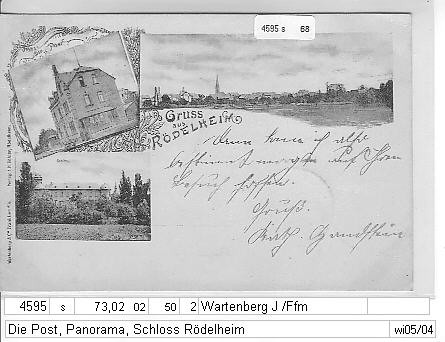 4595 s 68
Die Post
Gruss
aus
RÖDELHEIM
Schloss
Dann kann ich also
bestimmt morgen auf Ihren
Besuch hoffen.
Gruß.
Kath.
4595 s 73,02 02 50 2 Wartenberg J /Ffm
Die Post, Panorama, Schloss Rödelheim wi05/04